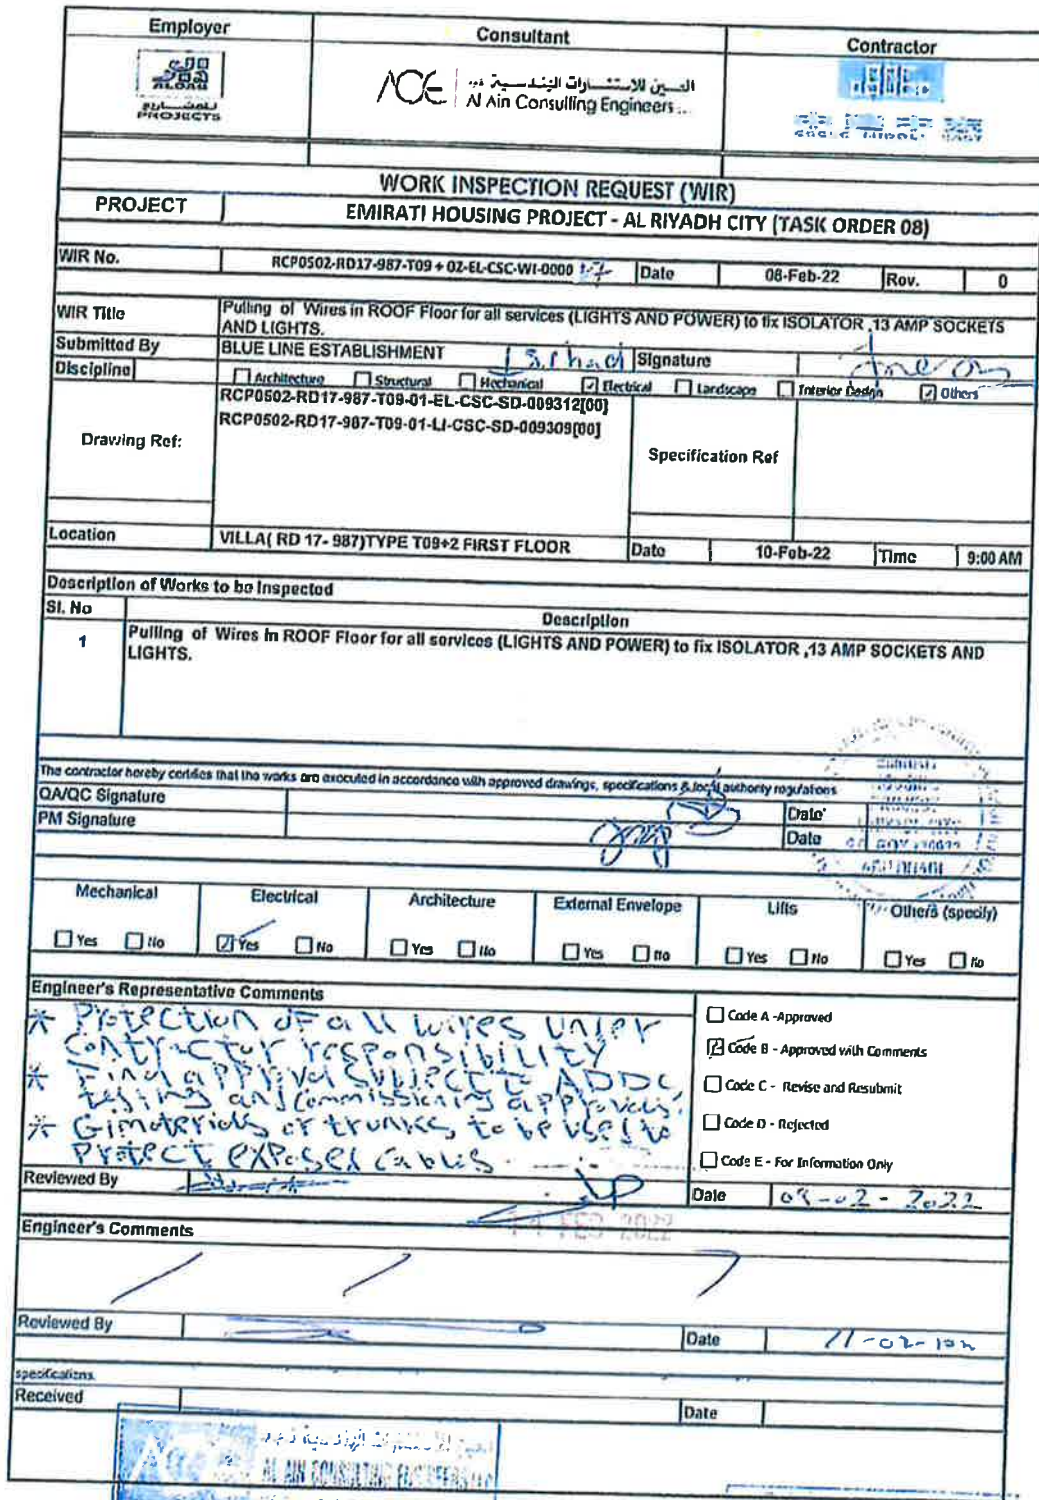 Employer
Consultant
Contractor
ALDAR
للمشاريع
PROJECTS
ACE
العين للاستشارات الهندسية ذ.م.م
Al Ain Consulting Engineers
WORK INSPECTION REQUEST (WIR)
PROJECT EMIRATI HOUSING PROJECT - AL RIYADH CITY (TASK ORDER 08)
WIR No. RCP0502-RD17-987-T09 + 02-EL-CSC-WI-0000 Date 08-Feb-22 Rev. 0
WIR Title Pulling of Wires in ROOF Floor for all services (LIGHTS AND POWER) to fix ISOLATOR ,13 AMP SOCKETS
AND LIGHTS.
Submitted By BLUE LINE ESTABLISHMENT Signature
Discipline Architecture Structural Mechanical Electrical Landscape Interior Design Others
Drawing Ref: RCP0502-RD17-987-T09-01-EL-CSC-SD-009312[00]
RCP0502-RD17-987-T09-01-LI-CSC-SD-009309[00]
Specification Ref
Location VILLA( RD 17- 987)TYPE T09+2 FIRST FLOOR Date 10-Feb-22 Time 9:00 AM
Description of Works to be Inspected
Sl. No Description
1 Pulling of Wires in ROOF Floor for all services (LIGHTS AND POWER) to fix ISOLATOR ,13 AMP SOCKETS AND
LIGHTS.
The contractor hereby certifies that the works are executed in accordance with approved drawings, specifications & local authority regulations
QA/QC Signature Date
PM Signature Date
ABU DHABI
Mechanical Electrical Architecture External Envelope Lifts Others (specify)
Yes No Yes No Yes No Yes No Yes No Yes No
Engineer's Representative Comments
* Protection of all wires under
contractor responsibility
* Final approval subject to ADDC
testing and commissioning approvals.
* GI materials or trunks, to be used to
Protect exposed cables
Code A -Approved
Code B - Approved with Comments
Code C - Revise and Resubmit
Code D - Rejected
Code E - For Information Only
Reviewed By Date 09-02-2022
FEB 2022
Engineer's Comments
Reviewed By Date
specifications.
Received Date
AL AIN CONSULTING ENGINEERS